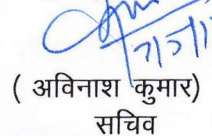 ( अविनाश कुमार)
सचिव